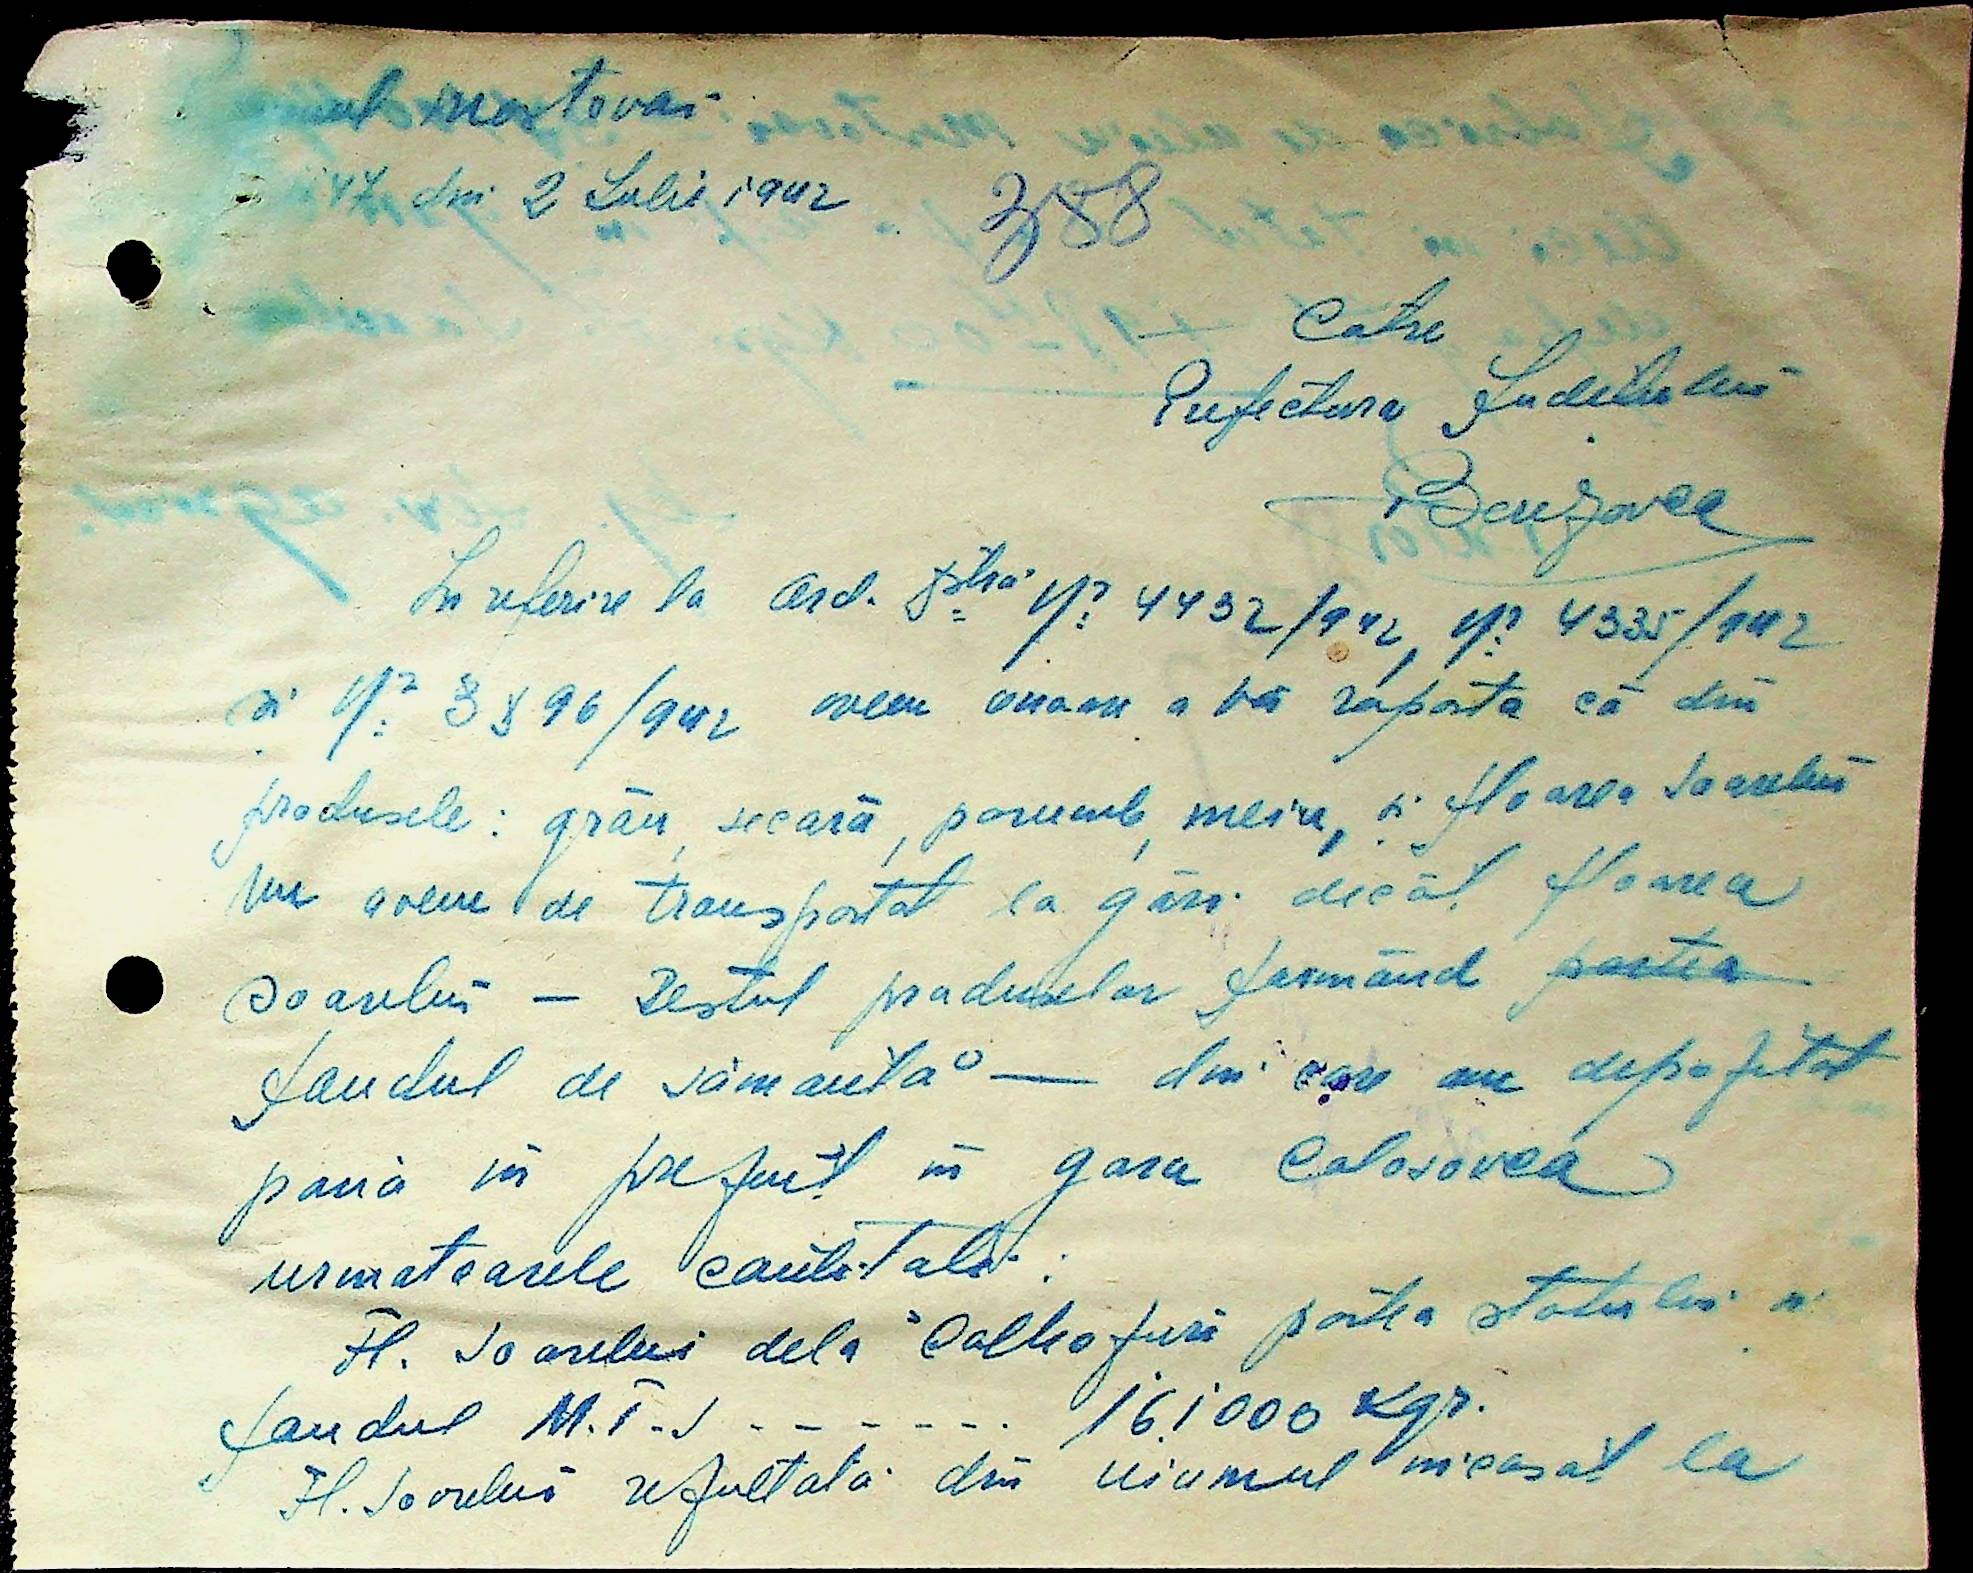 Mostovoi
47 din 2 Iulie 1942 388
Catre
Prefectura Judetului
Berezovca
In referire la Ord. Dstră Nº 4432/942, Nº 4335/942
si Nº 3896/942 avem onoare a vă raporta că din
produsele: grâu, secară, porumb, meiu, si floarea soarelui
nu avem de transportat la gări decât floarea
soarelui — Restul produselor formând partea
fondul de sămanta — din care am depozitat
pană in prezent in gara Colosovca
urmatoarele cantitati:
Fl. Soarelui dela Colhozuri partea statului si
fondul M.T.S ------- 161000 Kgr.
Fl. Soarelui rezultată din uiumul incasat la